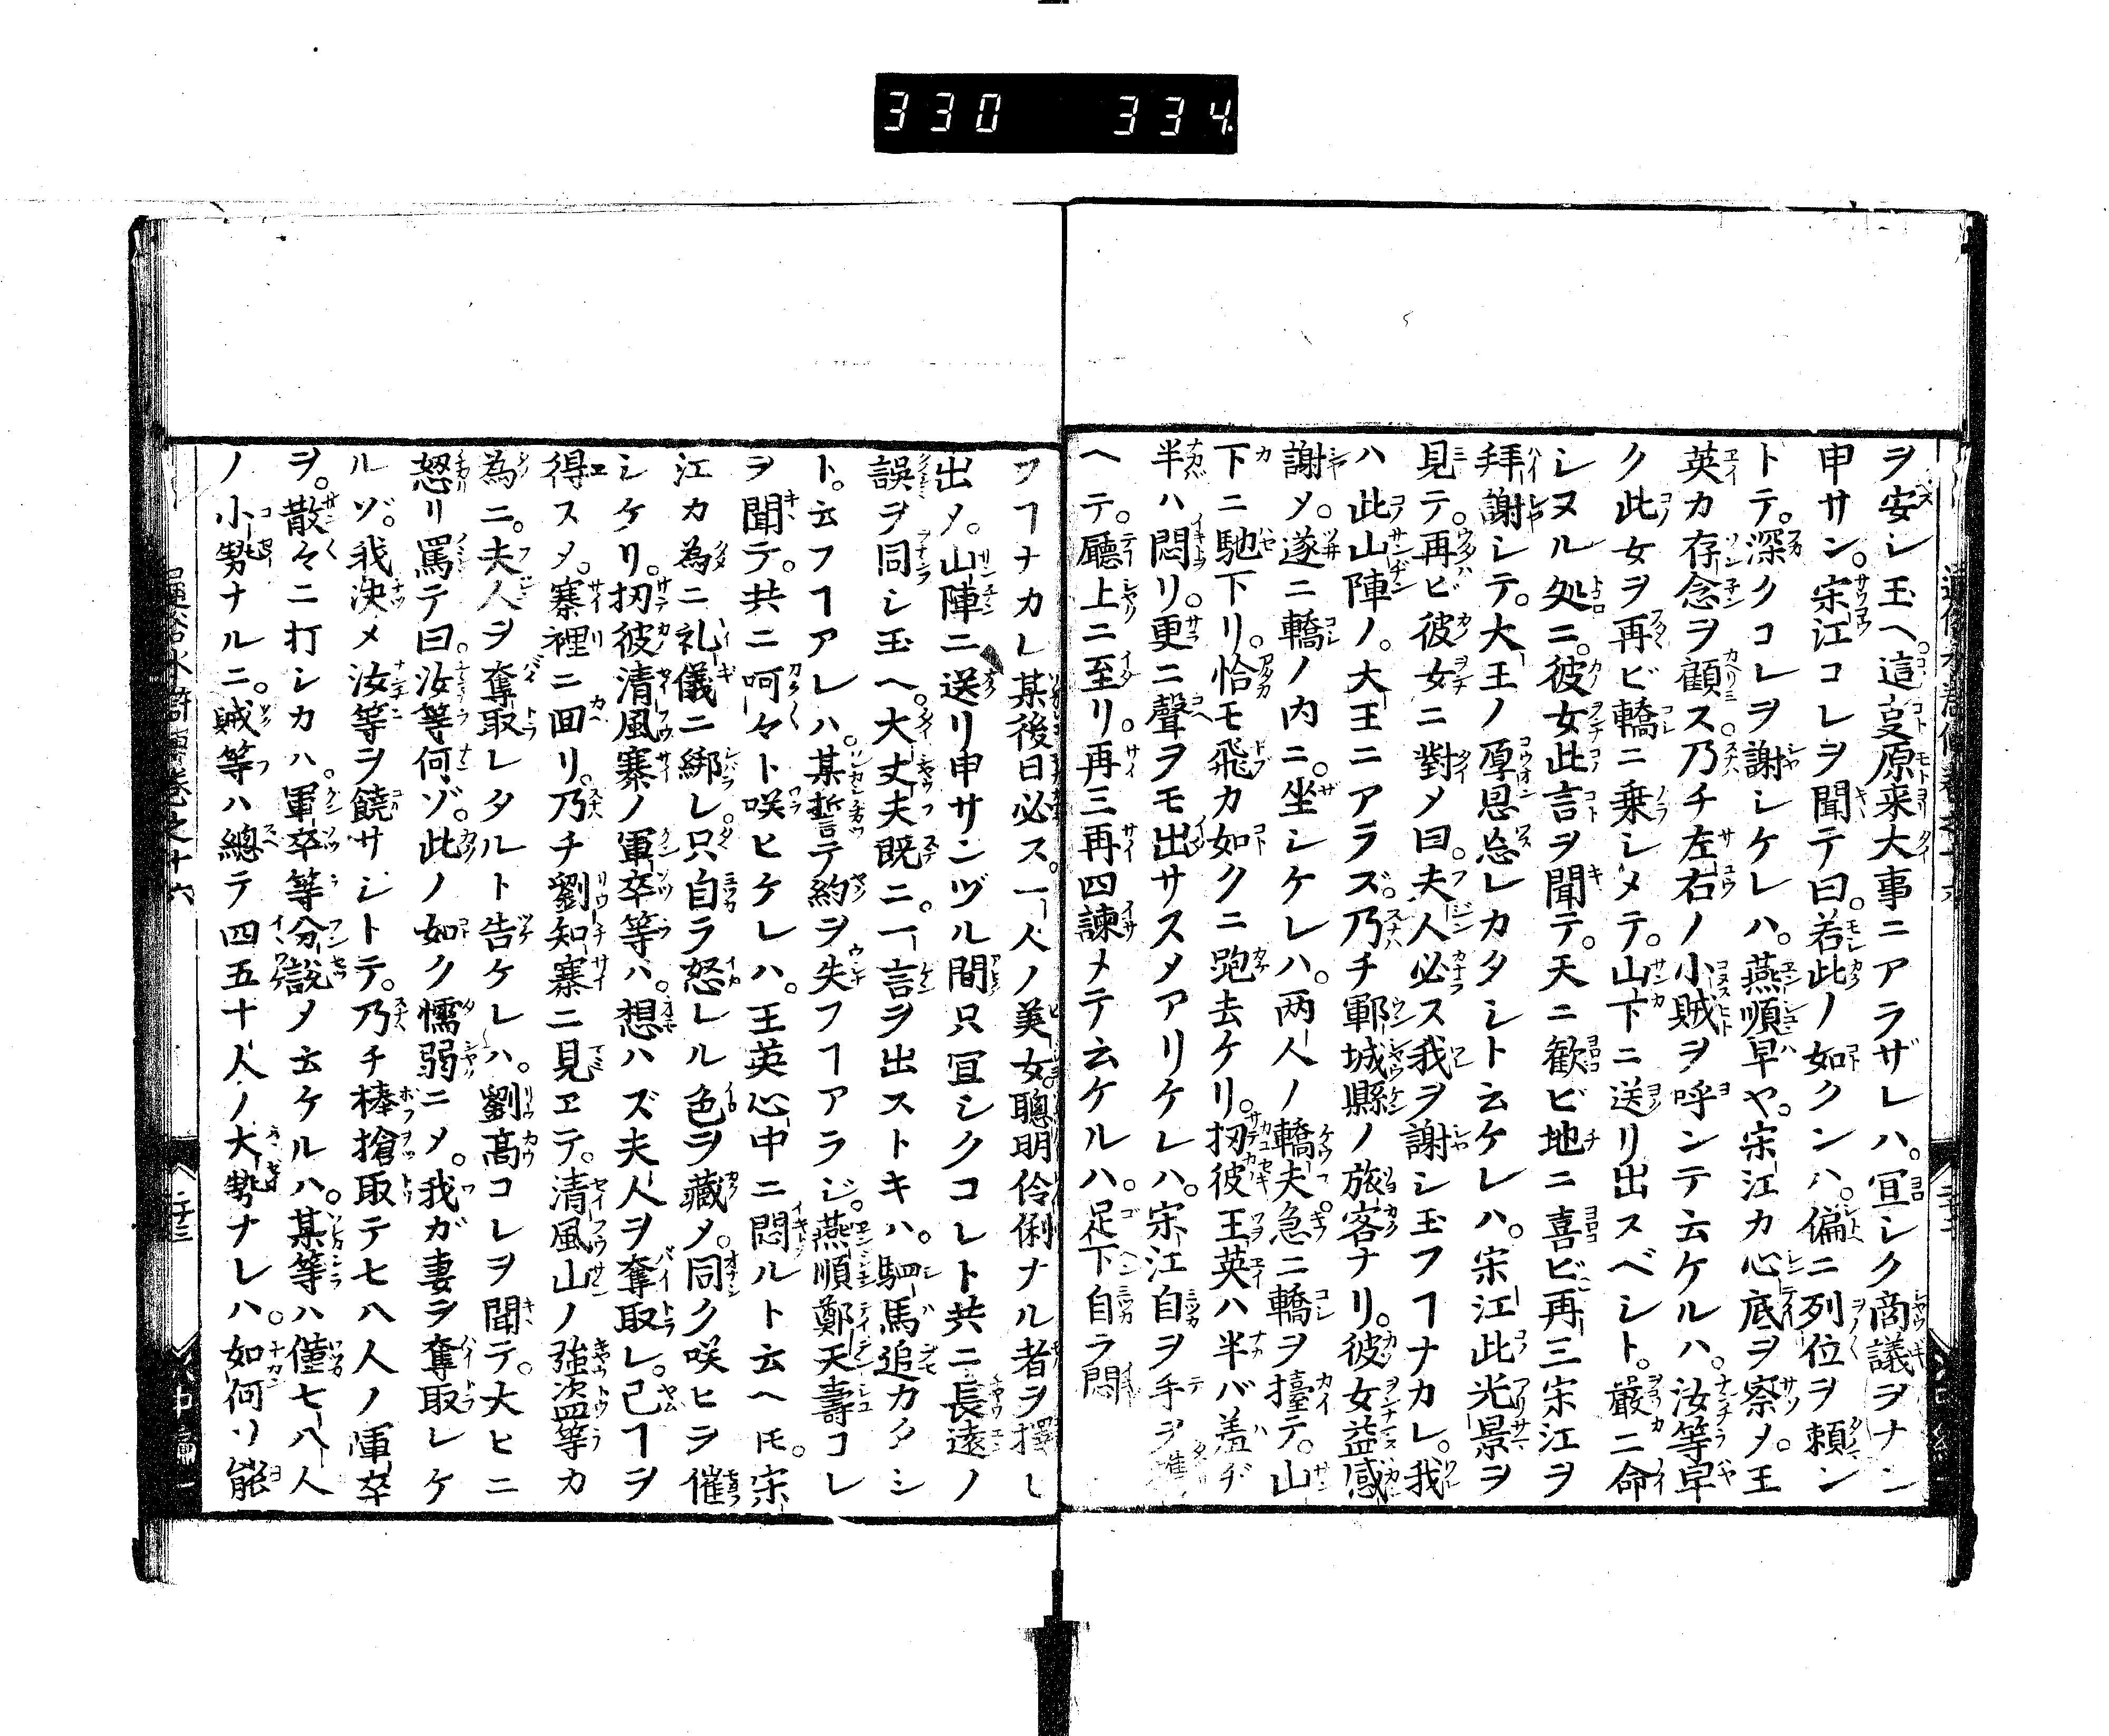 330 334
ヲ安シ玉ヘ。這𫝆原来大事ニアラザレハ。宜シク商議ヲナシ
申サン。宋江コレヲ聞テ曰。若此ノ如クンハ。偏ニ列位ヲ頼ン
トテ。深クコレヲ謝シケレハ。燕順早ヤ。宋江カ心底ヲ察メ。王
英カ存念ヲ顧ス乃チ左右ノ小賊ヲ呼ンテ云ケルハ。汝等早
ク此女ヲ再ビ轎ニ乗シメテ。山下ニ送リ出スベシト。嚴ニ命
シヌル処ニ。彼女此言ヲ聞テ。天ニ歓ビ地ニ喜ビ再三宋江ヲ
拜謝シテ。大王ノ厚恩忘レカタシト云ケレハ。宋江此光景ヲ
見テ。再ビ彼女ニ對メ曰。夫人必ス我ヲ謝シ玉フヿナカレ。我
ハ此山陣ノ。大王ニアラズ。乃チ鄆城縣ノ旅客ナリ。彼女益感
謝メ。遂ニ轎ノ内ニ。坐シケレハ。两人ノ轎夫。急ニ轎ヲ擡テ。山
下ニ馳下リ。恰モ飛カ如クニ跑去ケリ。扨彼王英ハ半バ羞ヂ
半ハ悶リ。更ニ聲ヲモ出サスメアリケレハ。宋江自ヲ手ヲ
ヘテ。廳上ニ至リ。再三再四諫メテ云ケルハ。足下自ラ悶
フヿナカレ某後日必ス。一人ノ美女。聰明伶俐ナル者ヲ擇ヒ
出メ。山陣ニ送リ申サンヅル間只宜シクコレト共ニ長遠ノ
誤ヲ同シ玉ヘ。大丈夫既ニ。一言ヲ出ストキハ。駟馬追カタシ
ト。云フヿアレハ。某誓テ約ヲ失フヿアラジ。燕順鄭天壽コレ
ヲ聞テ。共ニ呵々ト咲ヒケレハ。王英心中ニ悶ルト云ヘ𪜈。宋
江カ為ニ礼儀ニ綁レ。只自ラ怒レル色ヲ藏メ。同ク咲ヒヲ催
シケリ。扨彼清風寨ノ軍卒等ハ。想ハズ夫人ヲ奪取レ。已ヿヲ
得スメ。寨裡ニ回リ。乃チ劉知寨ニ見ヱテ。清風山ノ強盗等カ
為ニ。夫人ヲ奪取レタルト告ケレハ。劉髙コレヲ聞テ。大ヒニ
怒リ罵テ曰。汝等何ゾ。此ノ如ク懦弱ニメ。我ガ妻ヲ奪取レケ
ルゾ。我決メ汝等ヲ饒サシトテ。乃チ棒搶取テ七八人ノ軍卒
ヲ。散々ニ打シカハ。軍卒等分說メ云ケルハ。某等ハ僅七八人
ノ小勢ナルニ。賊等ハ總テ四五十人ノ大勢ナレハ。如何ソ能
水滸傳卷之十六
二十三